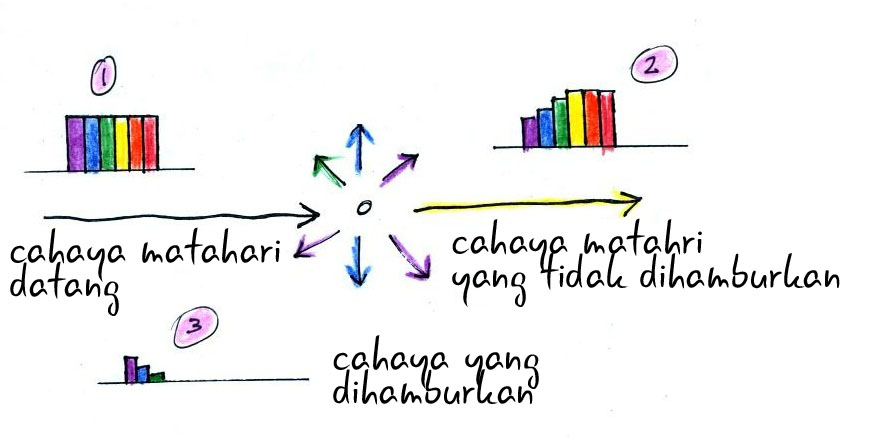 1
2
cahaya matahari
datang
cahaya matahri
yang tidak dihamburkan
3
cahaya yang
dihamburkan